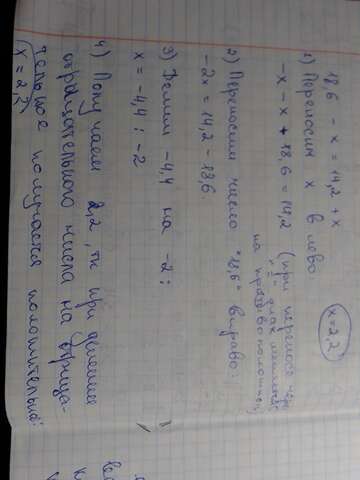 18,6 - x = 14,2 + x
1) Переносим x в лево:
-x - x + 18,6 = 14,2 (при переносе через
"=" знак меняется
на противоположный)
2) Переносим число "18,6" вправо:
-2x = 14,2 - 18,6.
3) Делим -4,4 на -2:
x = -4,4 : -2
4) Получаем 2,2, тк при делении
отрицательного числа на отрица-
тельное получается положительное.
x = 2,2
x = 2,2